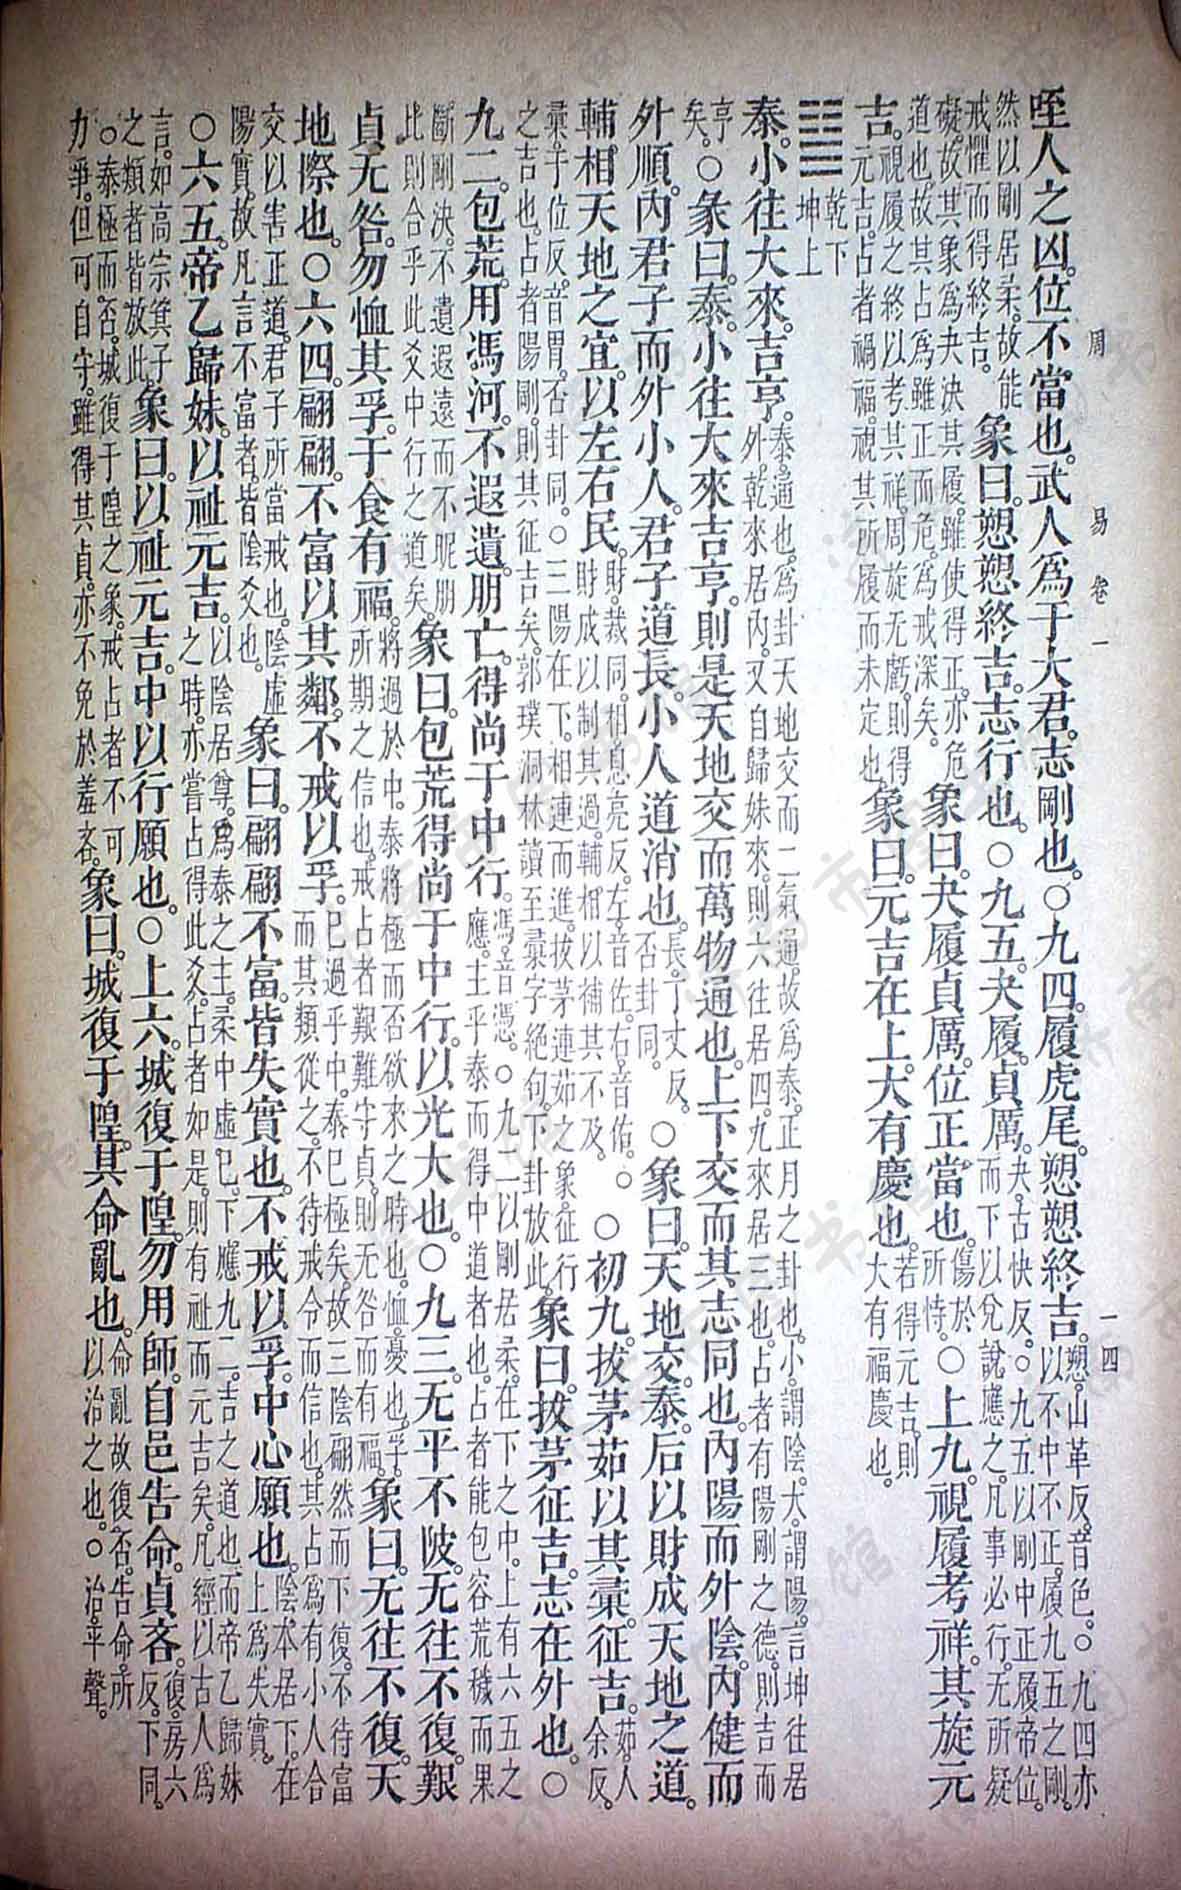 周易卷一 一四
咥人之凶。位不當也。武人爲于大君。志剛也。○九四。履虎尾。愬愬終吉。愬。山革反。音色。○九四亦以不中不正。履九五之剛。
然以剛居柔。故能戒懼而得終吉。象曰。愬愬終吉。志行也。○九五。夬履。貞厲。夬。古快反。○九五以剛中正履帝位。而下以兌說應之。凡事必行。无所疑
礙。故其象爲夬決其履。雖使得正。亦危道也。故其占爲雖正而危。爲戒深矣。象曰。夬履貞厲。位正當也。傷於所恃。○上九。視履考祥。其旋元
吉。視履之終。以考其祥。周旋无虧。則得元吉。占者禍福。視其所履而未定也。象曰。元吉在上。大有慶也。若得元吉。則大有福慶也。
䷊乾下坤上
泰。小往大來。吉亨。泰。通也。爲卦天地交而二氣通。故爲泰。正月之卦也。小。謂陰。大。謂陽。言坤往居外。乾來居內。又自歸妹來。則六往居四。九來居三也。占者有陽剛之德。則吉而
亨矣。○彖曰。泰。小往大來吉亨。則是天地交而萬物通也。上下交而其志同也。內陽而外陰。內健而
外順。內君子而外小人。君子道長。小人道消也。長。丁丈反。否卦同。○象曰。天地交。泰。后以財成天地之道。
輔相天地之宜。以左右民。財。裁同。相。息亮反。左。音佐。右。音佑。○財成以制其過。輔相以補其不及。○初九。拔茅茹以其彙。征吉。茹。人余反。
彙。于位反。音胃。否卦同。○三陽在下。相連而進。拔茅連茹之象。征行之吉也。占者陽剛。則其征吉矣。郭璞洞林讀至彙字絕句。下卦放此。象曰。拔茅征吉。志在外也。○
九二。包荒。用馮河。不遐遺。朋亡。得尚于中行。馮。音憑。○九二以剛居柔。在下之中。上有六五之應。主乎泰而得中道者也。占者能包容荒穢。而果
斷剛決。不遺遐遠。而不昵朋比。則合乎此爻中行之道矣。象曰。包荒得尚于中行。以光大也。○九三。无平不陂。无往不復。艱
貞无咎。勿恤其孚。于食有福。將過於中。泰將極而否欲來之時也。恤。憂也。孚。所期之信也。戒占者艱難守貞。則无咎而有福。象曰。无往不復。天
地際也。○六四。翩翩。不富以其鄰。不戒以孚。已過乎中。泰已極矣。故三陰翩然而下復。不待富而其類從之。不待戒令而信也。其占爲有小人合
交以害正道。君子所當戒也。陰虛陽實。故凡言不富者。皆陰爻也。象曰。翩翩不富。皆失實也。不戒以孚。中心願也。陰本居下。在上爲失實。
○六五。帝乙歸妹。以祉元吉。以陰居尊。爲泰之主。柔中虛己。下應九二。吉之道也。而帝乙歸妹之時。亦嘗占得此爻。占者如是。則有祉而元吉矣。凡經以古人爲
言。如高宗箕子之類者。皆放此。象曰。以祉元吉。中以行願也。○上六。城復于隍。勿用師。自邑告命。貞吝。復。房六反。下同。
○泰極而否。城復于隍之象。戒占者不可力爭。但可自守。雖得其貞。亦不免於羞吝。象曰。城復于隍。其命亂也。命亂故復否。告命。所以治之也。○治。平聲。